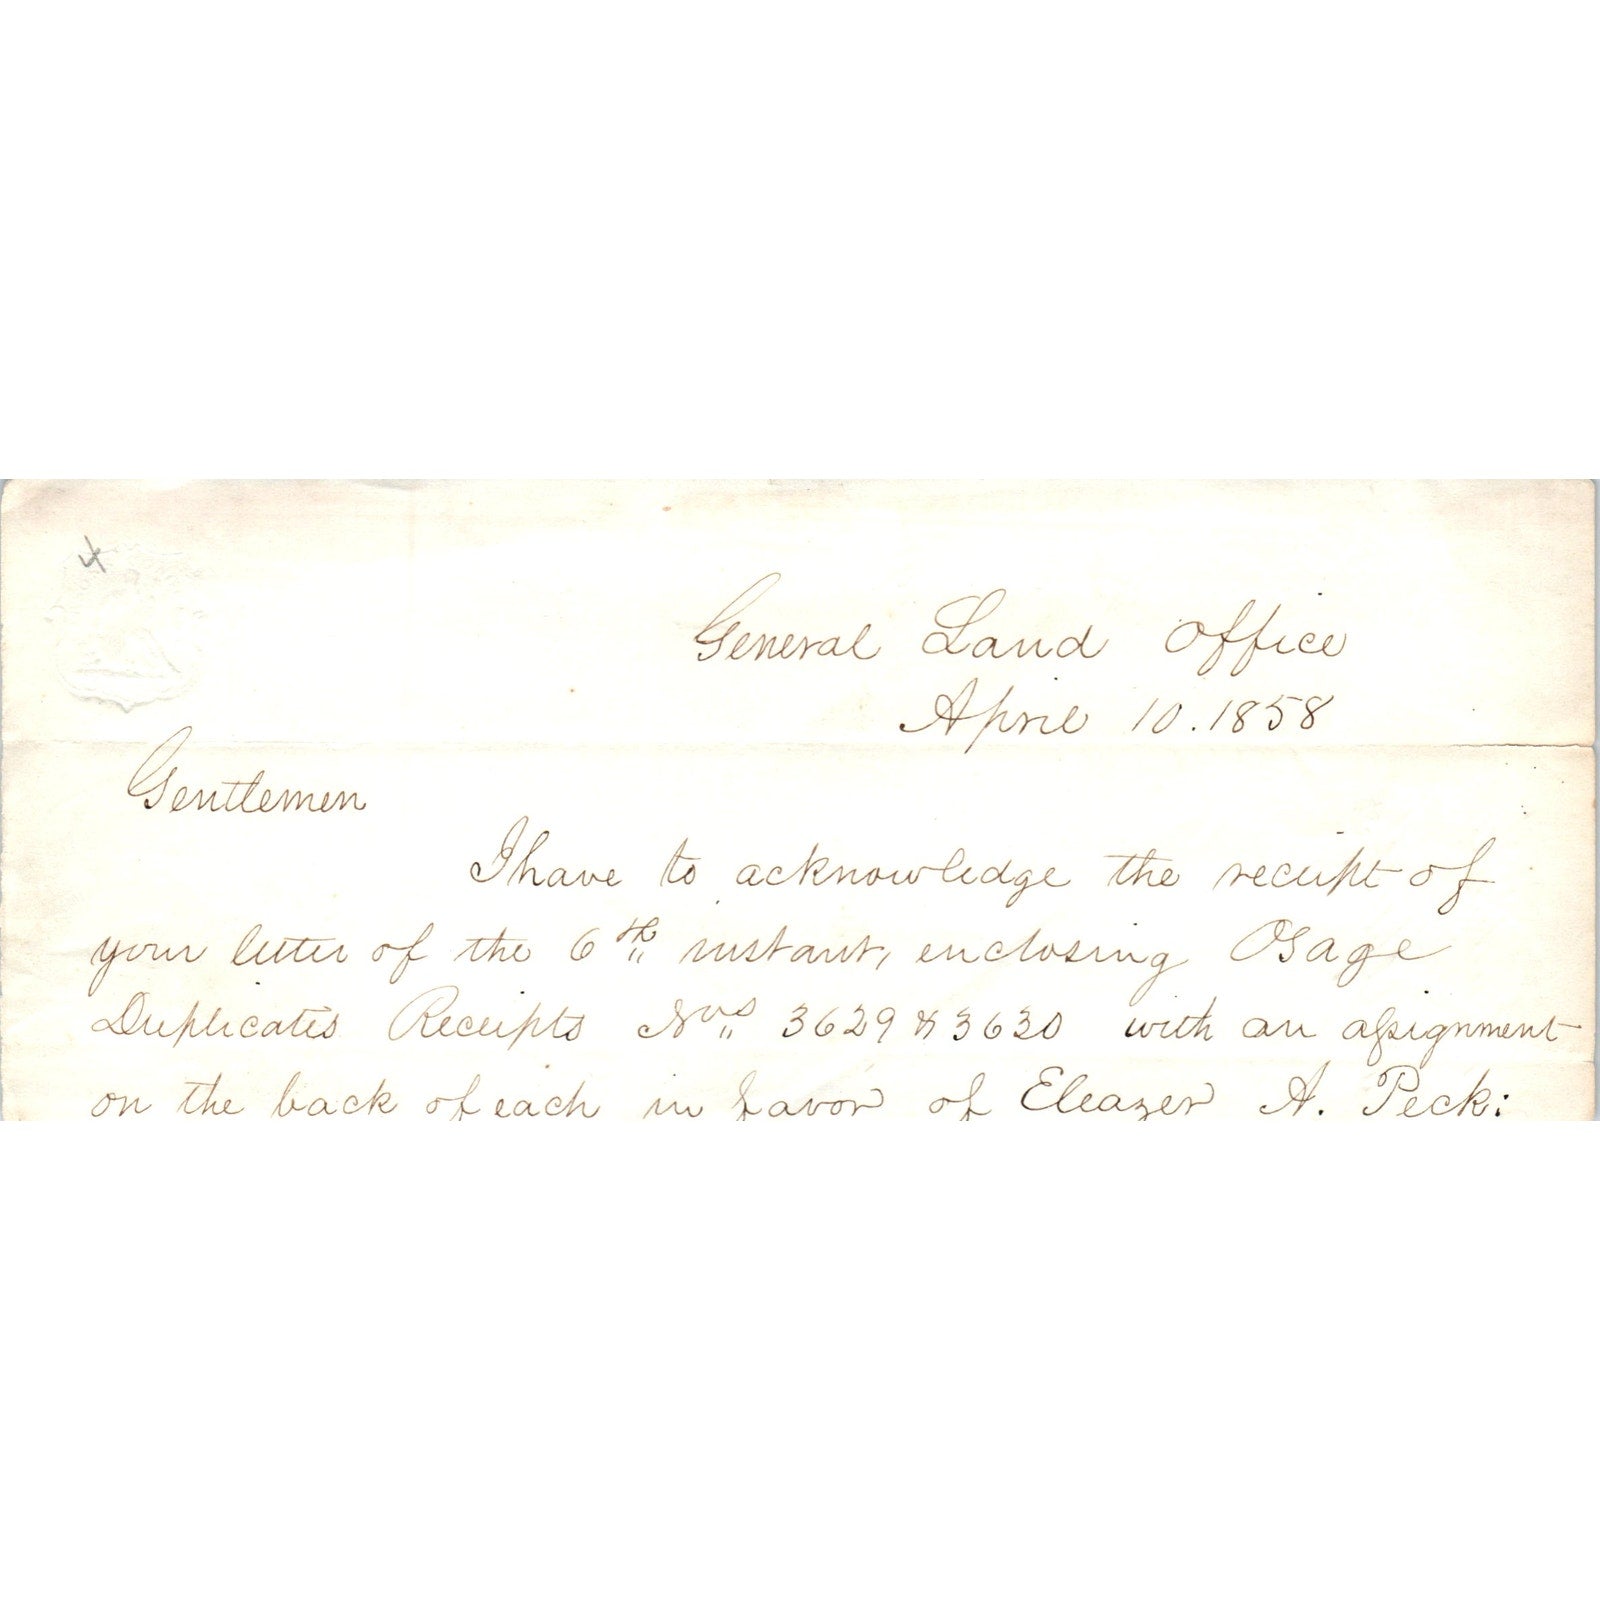 General Land Office
April 10. 1858
Gentlemen
I have to acknowledge the receipt of
your letter of the 6th instant, enclosing Osage
Duplicates Receipts Nos 3629 & 3630 with an assignment
on the back of each in favor of Eleazer A. Peck: